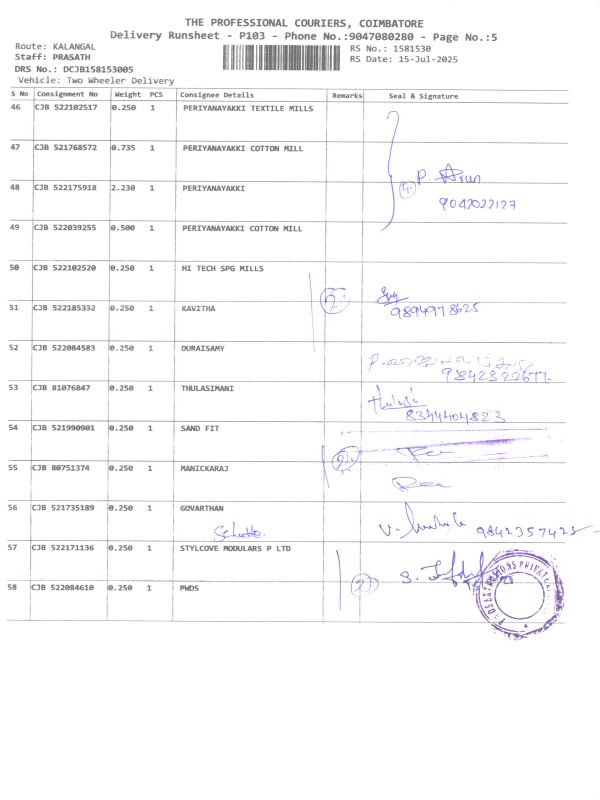 THE PROFESSIONAL COURIERS, COIMBATORE
Delivery Runsheet - P103 - Phone No.:9047080280 - Page No.:5
Route: KALANGAL
Staff: PRASATH
DRS No.: DCJB158153005
Vehicle: Two Wheeler Delivery
RS No.: 1581530
RS Date: 15-Jul-2025
S No Consignment No Weight PCS Consignee Details Remarks Seal & Signature
46 CJB 522102517 0.250 1 PERIYANAYAKKI TEXTILE MILLS
47 CJB 521768572 0.735 1 PERIYANAYAKKI COTTON MILL
P. Arun
48 CJB 522175918 2.230 1 PERIYANAYAKKI 4.
9042022127
49 CJB 522039255 0.500 1 PERIYANAYAKKI COTTON MILL
50 CJB 522102520 0.250 1 HI TECH SPG MILLS
2.
51 CJB 522185332 0.250 1 KAVITHA 9894978625
52 CJB 522084583 0.250 1 DURAISAMY
9842322677
53 CJB 81076847 0.250 1 THULASIMANI
8344404823
54 CJB 521990901 0.250 1 SAND FIT
2.
55 CJB 80751374 0.250 1 MANICKARAJ
56 CJB 521735189 0.250 1 GOVARTHAN
9842357425
57 CJB 522171136 0.250 1 STYLCOVE MODULARS P LTD
2.
58 CJB 522084610 0.250 1 PWDS